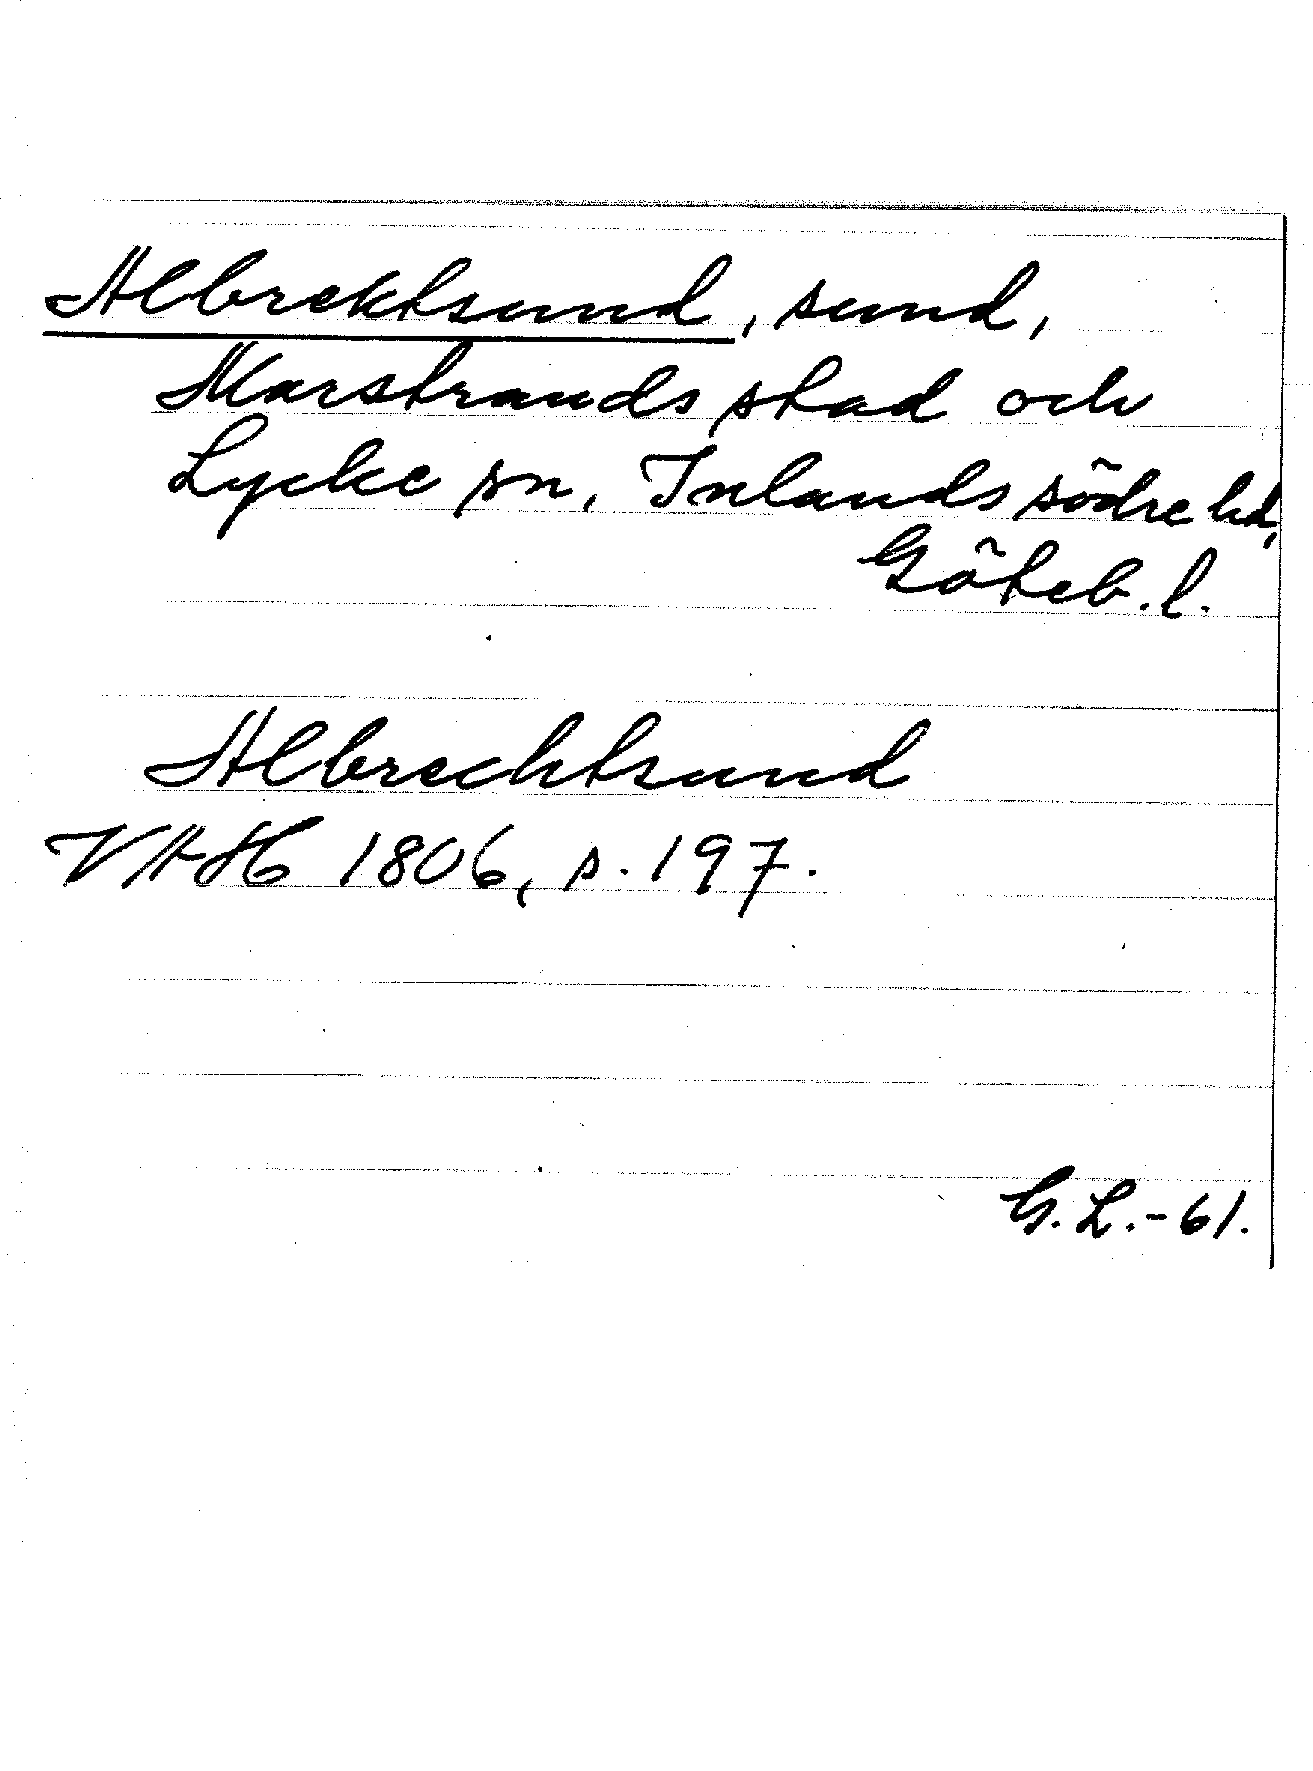 Albrektsund, sund,
Marstrands stad och
Lycke sn, Inlands södre hd,
Göteb. l.
Albrechtsund
VAH 1806, s. 197.
G. L. - 61.